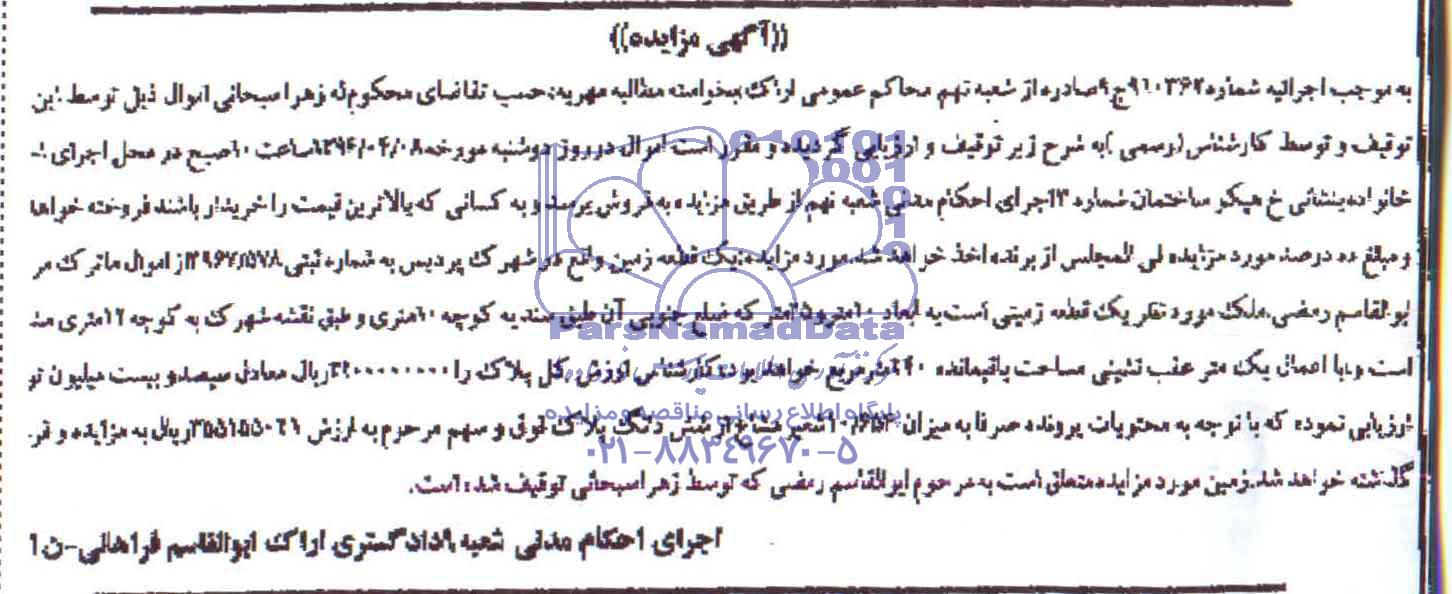 ((آگهی مزایده))
به موجب اجرائیه شماره ۹۱۰۳۶۲ج۹صادره از شعبه نهم محاکم عمومی اراک بخواسته مطالبه مهریه: حسب تقاضای محکوم‌له زهرا سبحانی اموال ذیل توسط این
توقیف و توسط کارشناس(رسمی )به شرح زیر توقیف و ارزیابی گردیده و مقرر است اموال در روز دوشنبه مورخه ساعت ۱۰صبح در محل اجرای
خانواده بنشانی خ هپکو ساختمان شماره اجرای احکام مدنی شعبه نهم از طریق مزایده به فروش برسد و به کسانی که بالاترین قیمت را خریدار باشند فروخته خواهد
و مبلغ ده درصد مورد مزایده فی المجلس از برنده اخذ خواهد شد.مورد مزایده:یک قطعه زمین واقع در شهرک پردیس به شماره ثبتی از اموال ماترک مر
ابوالقاسم رمضی.ملک مورد نظر یک قطعه زمینی است به ابعاد متر که ضلع جنوبی آن طبق سند به کوچه ۱۰متری و طبق نقشه شهرک به کوچه ۱۲متری
است و با اعمال یک متر عقب نشینی مساحت باقیمانده ۲۴۰مترمربع خواهد بود: کارشناس ارزش کل پلاک را ریال معادل سیصدو بیست میلیون تو
ارزیابی نموده که با توجه به محتویات پرونده صرفا به میزان شعیر مشاع از شش دانگ پلاک فوق و سهم مرحوم به ارزش ریال به مزایده و
گذاشته خواهد شد.زمین مورد مزایده متعلق است به مرحوم ابوالقاسم رمضی که توسط زهرا سبحانی توقیف شده است.
اجرای احکام مدنی شعبه ۹دادگستری اراک ابوالقاسم فراهانی-ن۱
ParsNamadData
پایگاه اطلاع رسانی مناقصه و مزایده
۰۲۱-۸۸۳۴۹۶۷۰-۵